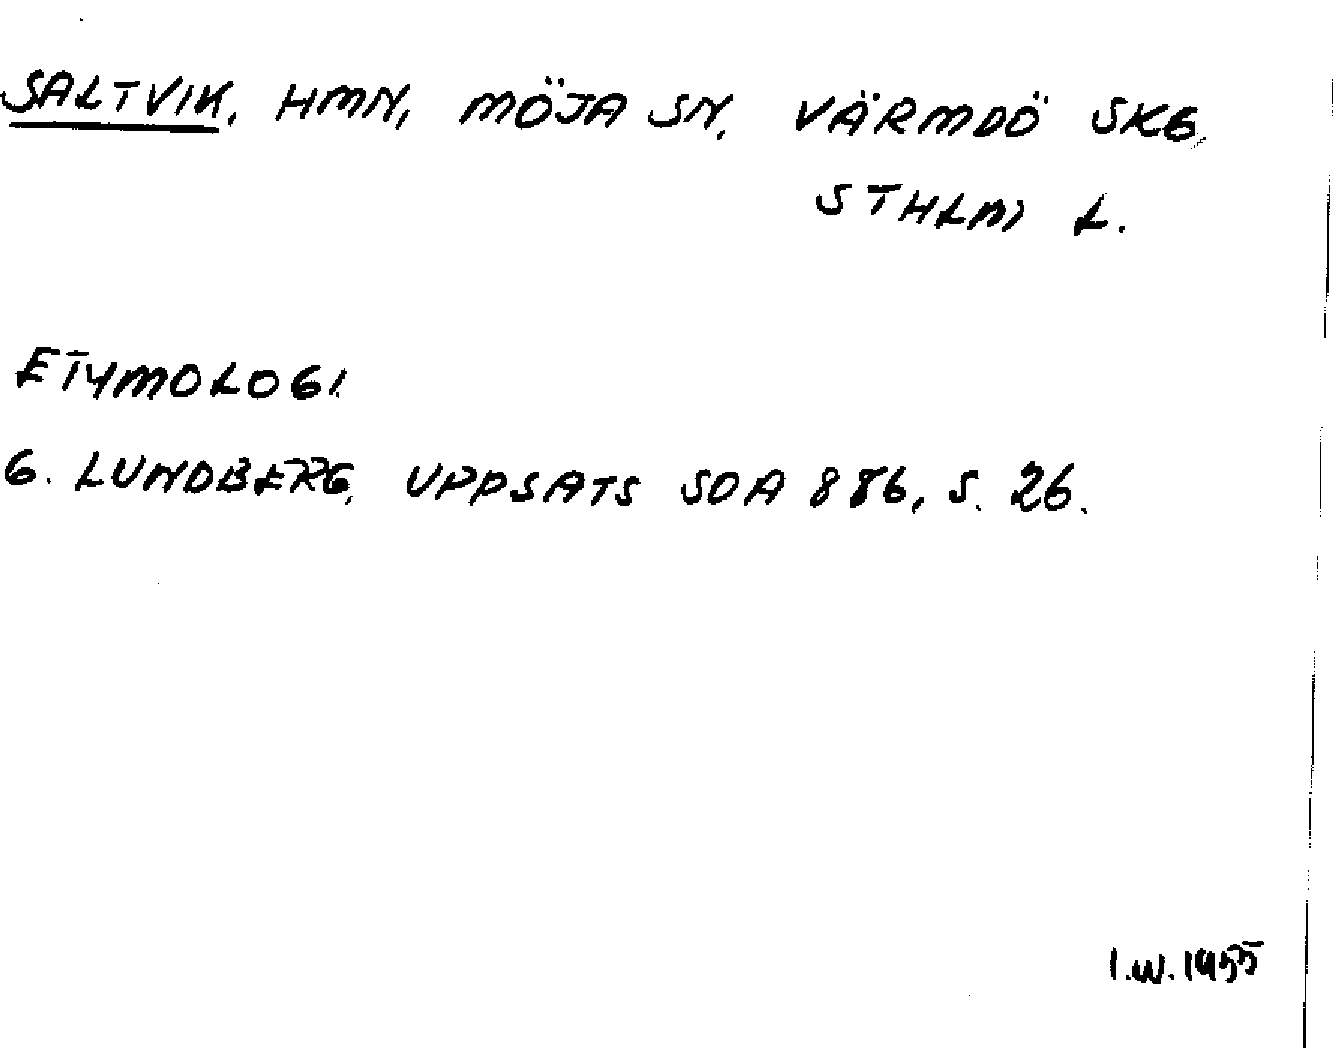 SALTVIK, HMN, MÖJA SN, VÄRMDÖ SKG,
STHLM L.
ETYMOLOGI.
G. LUNDBERG, UPPSATS SOA 886, S. 26.
I.W. 1955